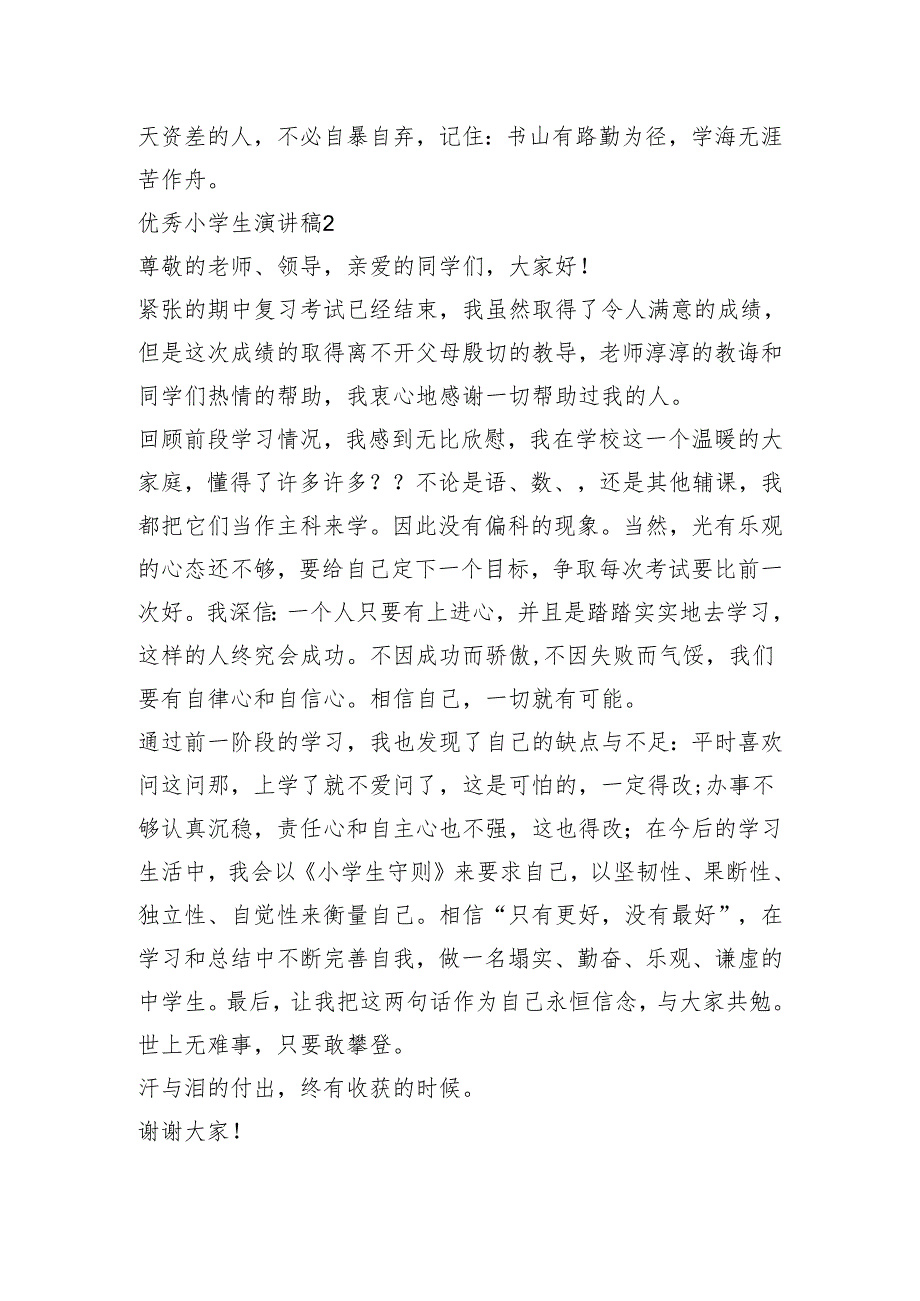 天资差的人，不必自暴自弃，记住：书山有路勤为径，学海无涯
苦作舟。
优秀小学生演讲稿2
尊敬的老师、领导，亲爱的同学们，大家好！
紧张的期中复习考试已经结束，我虽然取得了令人满意的成绩，
但是这次成绩的取得离不开父母殷切的教导，老师淳淳的教诲和
同学们热情的帮助，我衷心地感谢一切帮助过我的人。
回顾前段学习情况，我感到无比欣慰，我在学校这一个温暖的大
家庭，懂得了许多许多？？不论是语、数、，还是其他辅课，我
都把它们当作主科来学。因此没有偏科的现象。当然，光有乐观
的心态还不够，要给自己定下一个目标，争取每次考试要比前一
次好。我深信：一个人只要有上进心，并且是踏踏实实地去学习，
这样的人终究会成功。不因成功而骄傲,不因失败而气馁，我们
要有自律心和自信心。相信自己，一切就有可能。
通过前一阶段的学习，我也发现了自己的缺点与不足：平时喜欢
问这问那，上学了就不爱问了，这是可怕的，一定得改;办事不
够认真沉稳，责任心和自主心也不强，这也得改；在今后的学习
生活中，我会以《小学生守则》来要求自己，以坚韧性、果断性、
独立性、自觉性来衡量自己。相信“只有更好，没有最好”，在
学习和总结中不断完善自我，做一名塌实、勤奋、乐观、谦虚的
中学生。最后，让我把这两句话作为自己永恒信念，与大家共勉。
世上无难事，只要敢攀登。
汗与泪的付出，终有收获的时候。
谢谢大家！